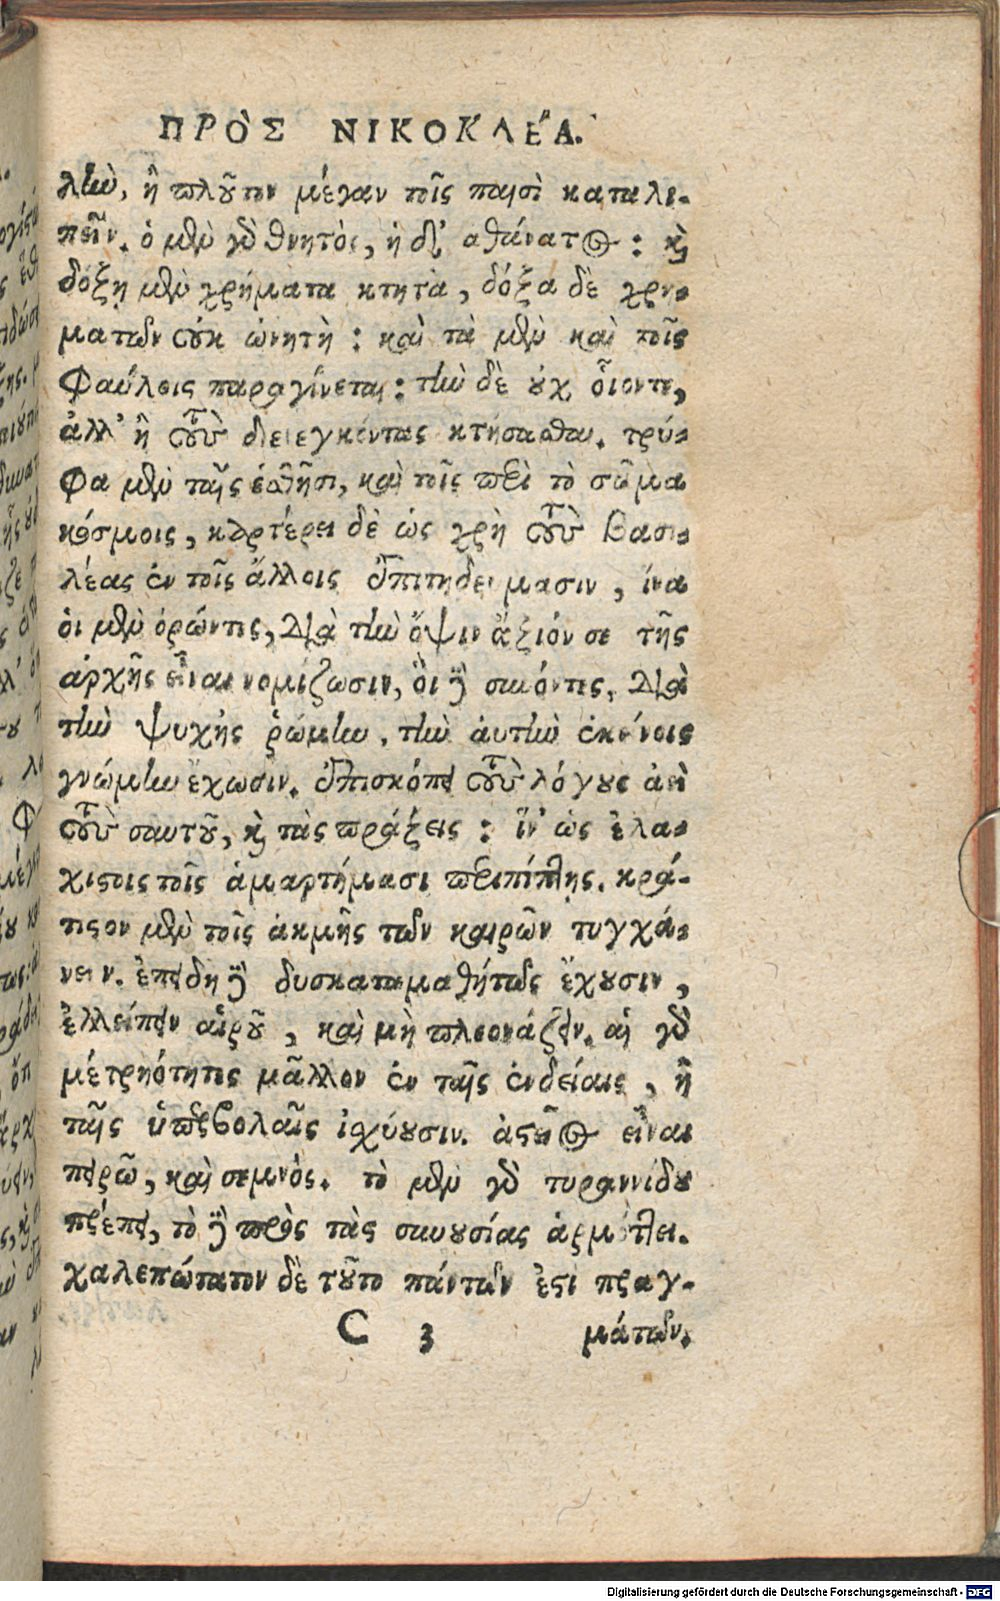 ΠΡῸΣ ΝΙΚΟΚΛΈΑ.
λὴν, ἢ πλοῦτον μέγαν τοῖς παισὶ καταλι-
πεῖν. ὁ μὲν γὰ θνητὸς, ἡ δ' ἀθάνατος: καὶ
δόξῃ μὲν χρήματα κτητὰ, δόξα δὲ χρη-
μάτων οὐκ ὠνητὴ: καὶ τὰ μὲν καὶ τοῖς
φαύλοις παραγίνεται: τὴν δὲ οὐχ οἷοντε,
ἀλλ' ἢ τοὺς διενεγκόντας κτήσασθαι. τρύ-
φα μὲν ταῖς ἐσθῆσι, καὶ τοῖς περὶ τὸ σῶμα
κόσμοις, καρτέρει δὲ ὡς χρὴ τοὺς βασι-
λέας ἐν τοῖς ἄλλοις ἐπιτηδεύμασιν, ἵνα
οἱ μὲν ὁρῶντες, διὰ τὴν ὄψιν ἄξιόν σε τῆς
ἀρχῆς εἶναι νομίζωσιν, οἱ δὲ συνόντες, διὰ
τὴν ψυχῆς ῥώμην, τὴν αὐτὴν ἐκείνοις
γνώμην ἔχωσιν. ἐπισκόπει τοὺς λόγους ἀεὶ
τοὺς σαυτοῦ, καὶ τὰς πράξεις: ἵν' ὡς ἐλα-
χίστοις τοῖς ἁμαρτήμασι περιπίπτῃς. κρά-
τιστον μὲν τοῖς ἀκμῆς τῶν καιρῶν τυγχά-
νειν. ἐπειδὴ δὲ δυσκαταμαθήτως ἔχουσιν,
ἐλλείπειν αἱροῦ, καὶ μὴ πλεονάζειν. αἱ γὰρ
μετριότητες μᾶλλον ἐν ταῖς ἐνδείαις, ἢ
ταῖς ὑπερβολαῖς ἰσχύουσιν. ἀστεῖος εἶναι
πειρῶ, καὶ σεμνὸς. τὸ μὲν γὰρ τυραννίδι
πρέπει, τὸ δὲ πρὸς τὰς συνουσίας ἁρμόττει.
χαλεπώτατον δὲ τοῦτο πάντων ἐστὶ πραγ-
C 3 μάτων.
Digitalisierung gefördert durch die Deutsche Forschungsgemeinschaft - DFG